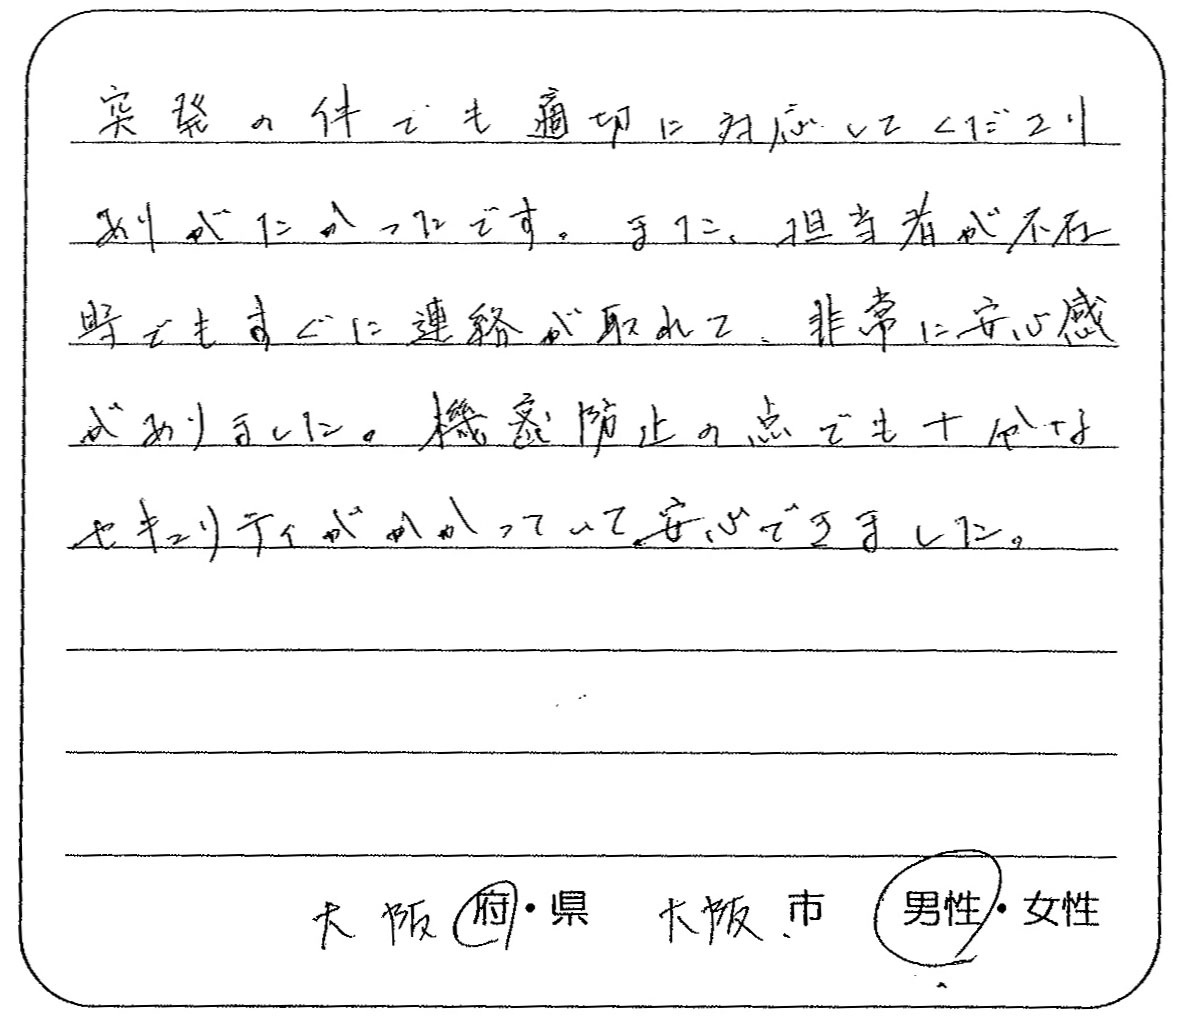 突発の件でも適切に対応してくださり
ありがたかったです。また、担当者が不在
時でもすぐに連絡が取れて、非常に安心感
がありました。機密防止の点でも十分な
セキュリティがかかっていて安心できました。
大阪府・県 大阪市 男性・女性